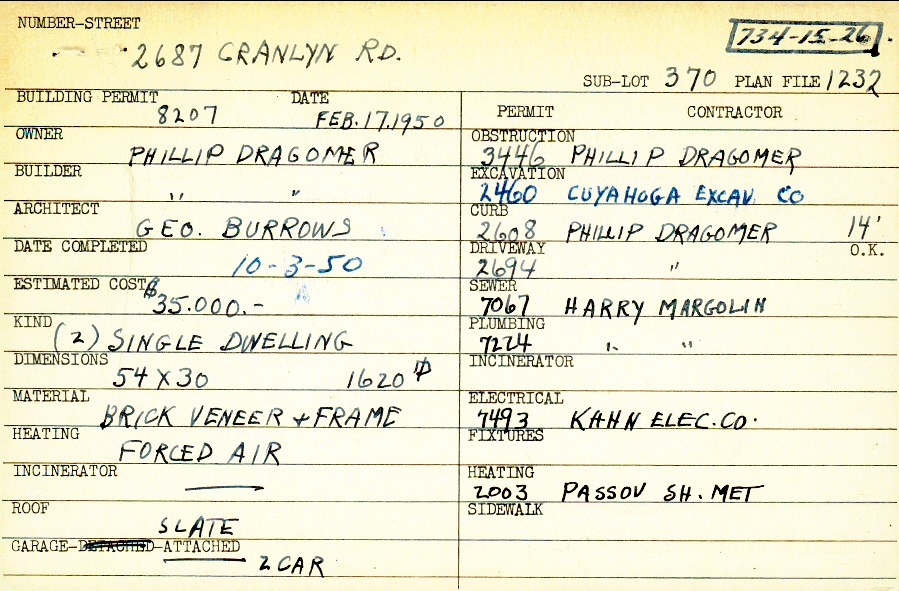 NUMBER-STREET
2687 CRANLYN RD.
734-15-26
SUB-LOT 370 PLAN FILE 1232
BUILDING PERMIT DATE
8207 FEB.17,1950
OWNER
PHILLIP DRAGOMER
BUILDER
" "
ARCHITECT
GEO. BURROWS
DATE COMPLETED
10-3-50
ESTIMATED COST
$35.000.-
KIND
(2) SINGLE DWELLING
DIMENSIONS
54 X 30 1620
MATERIAL
BRICK VENEER + FRAME
HEATING
FORCED AIR
INCINERATOR
—
ROOF
SLATE
GARAGE-DETACHED-ATTACHED
2 CAR
PERMIT CONTRACTOR
OBSTRUCTION
3446 PHILLIP DRAGOMER
EXCAVATION
2460 CUYAHOGA EXCAV. CO
CURB
2608 PHILLIP DRAGOMER 14'
DRIVEWAY O.K.
2694 "
SEWER
7067 HARRY MARGOLIN
PLUMBING
7224 " "
INCINERATOR
ELECTRICAL
7493 KAHN ELEC.CO.
FIXTURES
HEATING
2003 PASSOV SH. MET
SIDEWALK